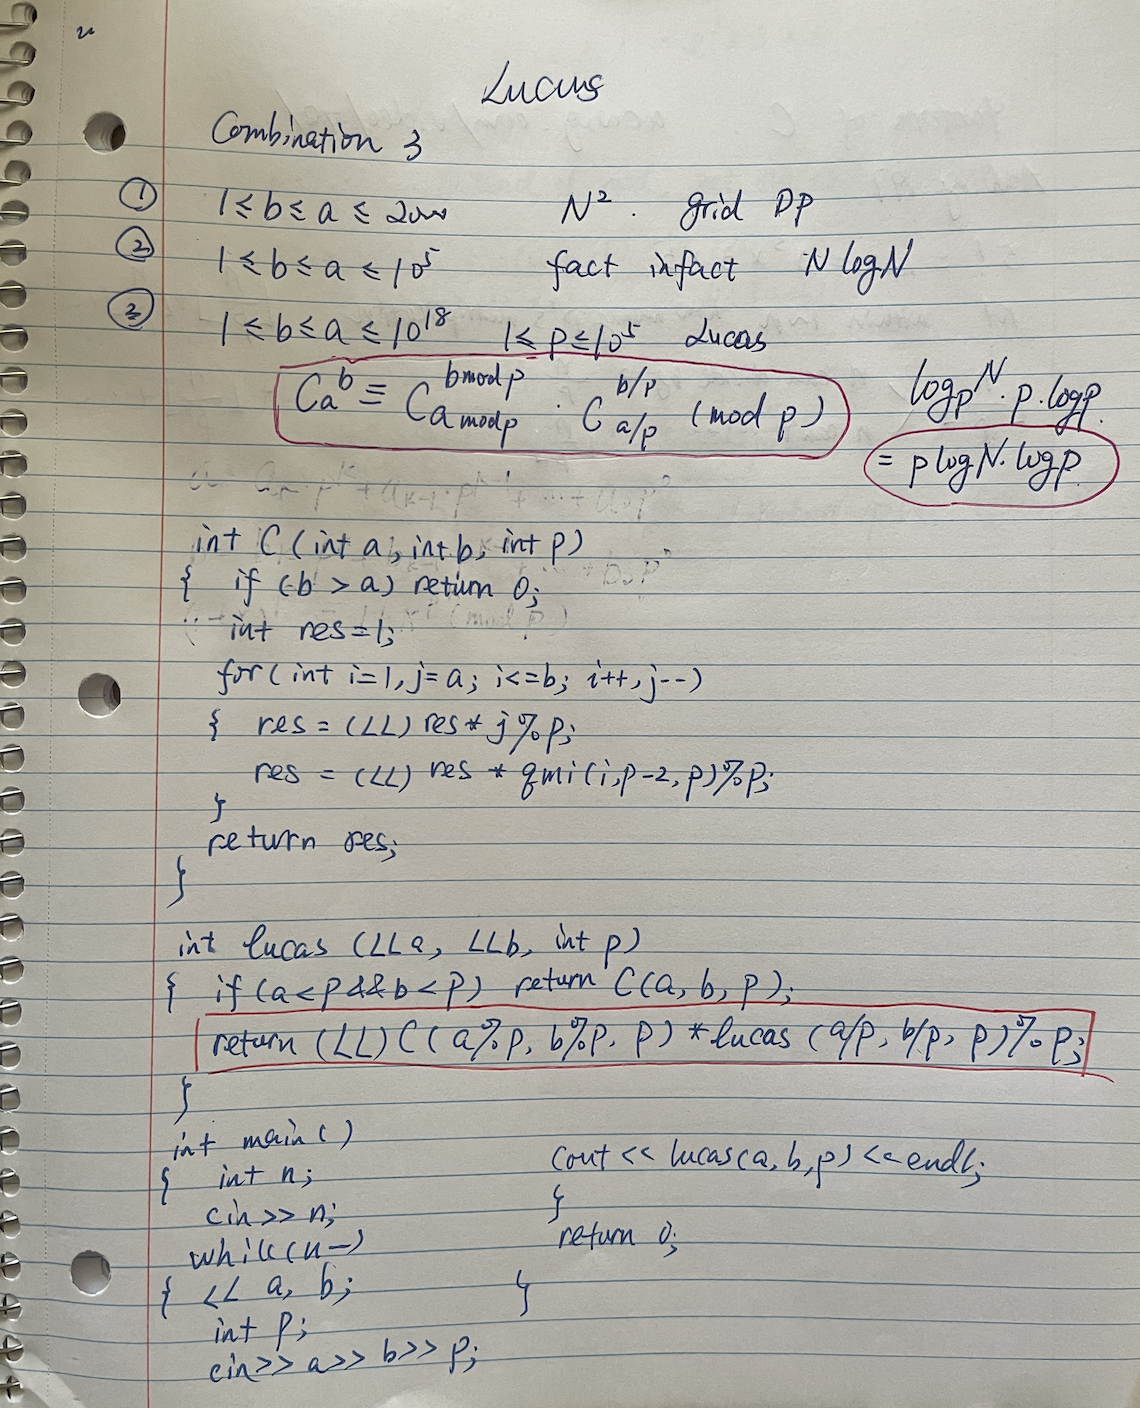 Lucus
Combination 3
① 1 ≤ b ≤ a ≤ 2000 N². grid DP
② 1 ≤ b ≤ a ≤ 10⁵ fact infact N logN
③ 1 ≤ b ≤ a ≤ 10¹⁸ 1 ≤ p ≤ 10⁵ Lucas
C_a^b ≡ C_{a mod p}^{b mod p} · C_{a/p}^{b/p} (mod p)
log_p N · p · logp.
= p logN · logp.
int C (int a, int b, int p)
{ if (b > a) return 0;
int res=1;
for( int i=1, j=a; i<=b; i++, j--)
{ res = (LL) res * j%p;
res = (LL) res * qmi(i, p-2, p)%p;
}
return res;
}
int lucas (LL a, LL b, int p)
{ if (a<p && b<p) return C(a, b, p);
return (LL) C( a%p, b%p, p) * lucas (a/p, b/p, p)%p;
}
int main ( )
{ int n;
cin >> n;
while (n--)
{ LL a, b;
int p;
cin>> a>> b>> p;
cout << lucas(a, b, p) << endl;
}
return 0;
}